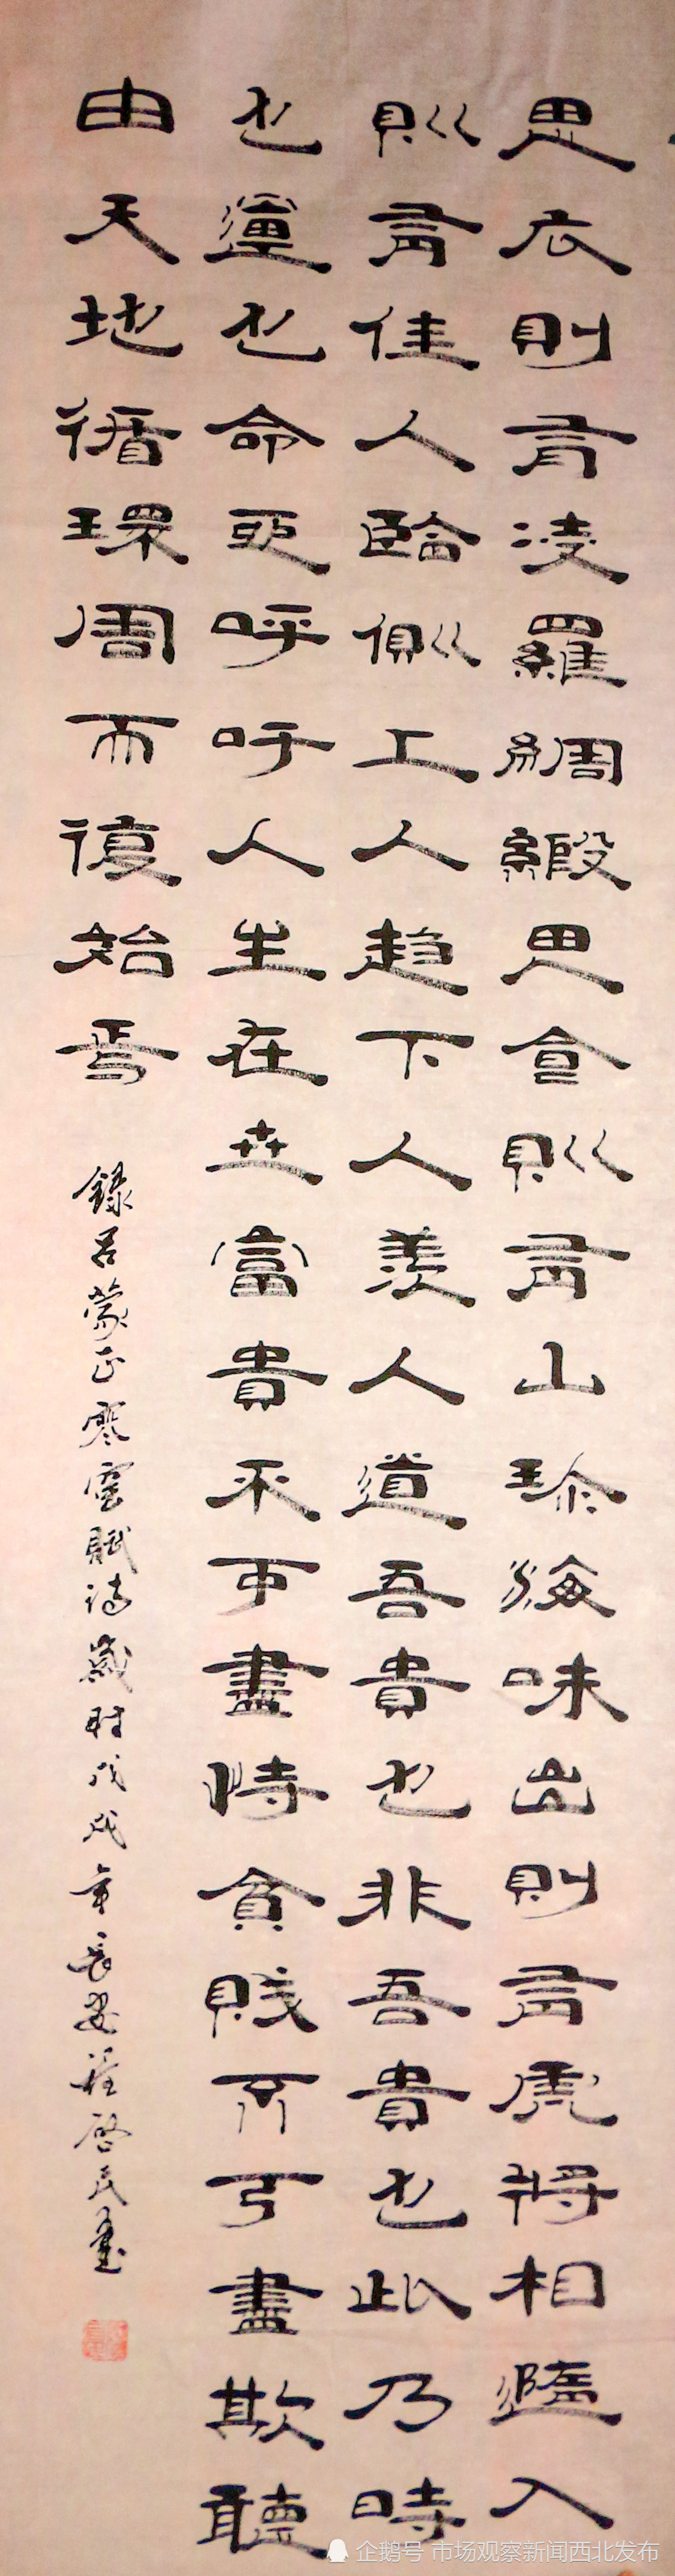 思衣則有淩羅綢緞思食則有山珍海味出則有虎將相隨入
則有佳人臨側上人趨下人羨人道吾貴也非吾貴也此乃時
也運也命也呼吁人生在世富貴不可盡恃貧賤不可盡欺聽
由天地循環周而復始焉
錄呂蒙正寒窑賦詩歲時戊戌年長安程啓民書
企鹅号 市场观察新闻西北发布